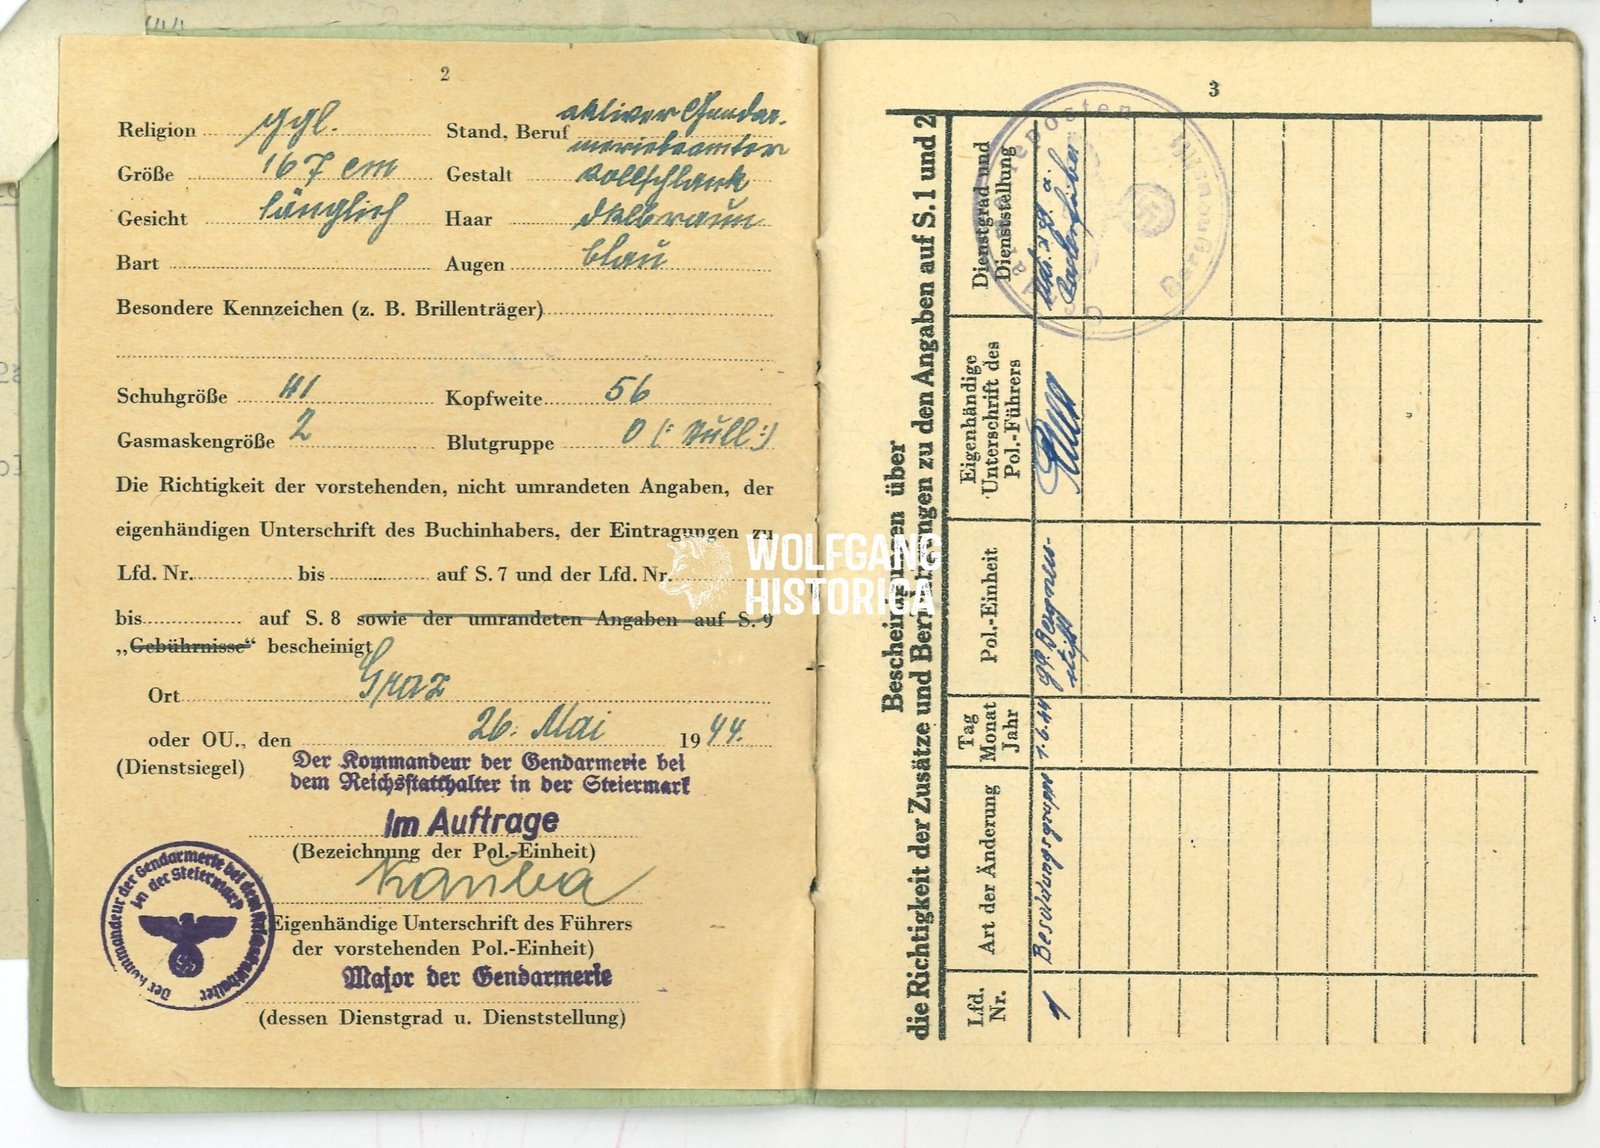 2
Religion ggl. Stand, Beruf aktiver Gendar-
meriebeamter
Größe 167 cm Gestalt vollschlank
Gesicht länglich Haar dklbraun
Bart Augen blau
Besondere Kennzeichen (z. B. Brillenträger)
Schuhgröße 41 Kopfweite 56
Gasmaskengröße 2 Blutgruppe 0 (: Null :)
Die Richtigkeit der vorstehenden, nicht umrandeten Angaben, der
eigenhändigen Unterschrift des Buchinhabers, der Eintragungen zu
Lfd. Nr. bis auf S. 7 und der Lfd. Nr.
bis auf S. 8 sowie der umrandeten Angaben auf S. 9
„Gebührnisse“ bescheinigt
Ort Graz
oder OU., den 26. Mai 1944.
(Dienstsiegel)
Der Kommandeur der Gendarmerie bei
dem Reichsstatthalter in der Steiermark
Im Auftrage
(Bezeichnung der Pol.-Einheit)
Kauba
Eigenhändige Unterschrift des Führers
der vorstehenden Pol.-Einheit)
Major der Gendarmerie
(dessen Dienstgrad u. Dienststellung)
Der Kommandeur der Gendarmerie bei dem Reichsstatthalter
in der Steiermark
WOLFGANG
HISTORICA
3
Bescheinigungen über
die Richtigkeit der Zusätze und Berichtigungen zu den Angaben auf S. 1 und 2
Lfd.
Nr.
Art der Änderung
Tag
Monat
Jahr
Pol.-Einheit
Eigenhändige
Unterschrift des
Pol.-Führers
Dienstgrad und
Dienststellung
1 Besoldungsgruppe 1.6.44